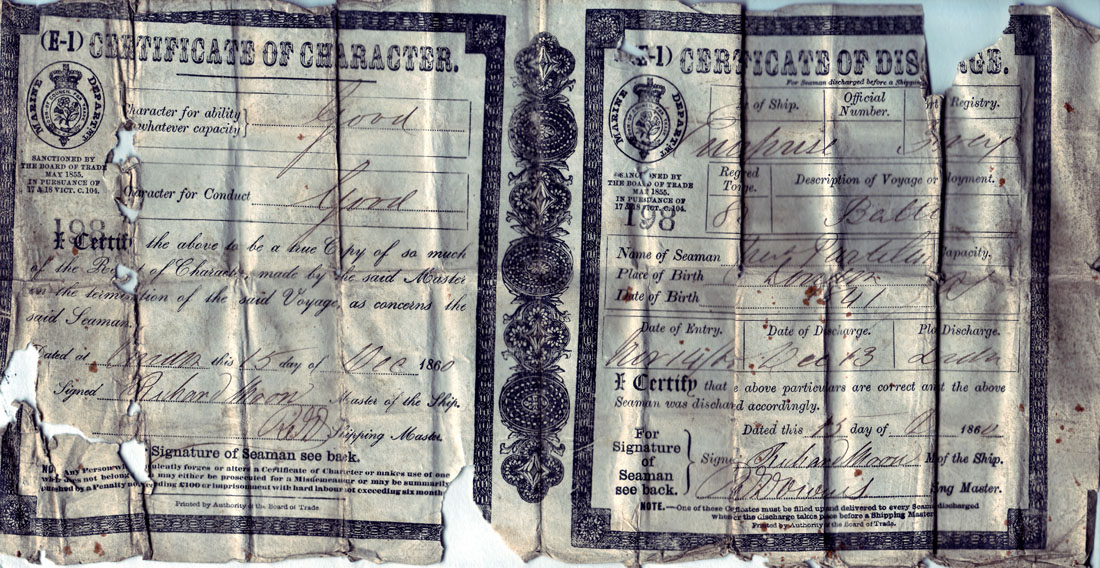 (E-1) CERTIFICATE OF CHARACTER.
MARINE DEPARTMENT
SANCTIONED BY
THE BOARD OF TRADE
MAY 1855.
IN PURSUANCE OF
17 & 18 VICT. C. 104.
198
Character for ability
whatever capacity
Good
Character for Conduct
Good
I Certify the above to be a true Copy of so much
of the Report of Character, made by the said Master
on the termination of the said Voyage, as concerns the
said Seaman.
Dated at this 15 day of Dec 1860
Signed Richard Moon Master of the Ship.
Shipping Master
Signature of Seaman see back.
NO Any Person fraudulently forges or alters a Certificate of Character or makes use of one
which does not belong may either be prosecuted for a Misdemeanour or may be summarily
punished by a Penalty not exceeding £100 or imprisonment with hard labour not exceeding six month
Printed by Authority of the Board of Trade.
(E-1) CERTIFICATE OF DISCHARGE.
For Seaman discharged before a Shipping
MARINE DEPARTMENT
SANCTIONED BY
THE BOARD OF TRADE
MAY 1855.
IN PURSUANCE OF
17 & 18 VICT. C. 104.
198
of Ship.
Official
Number.
Port Registry.
Description of Voyage or loyment.
Name of Seaman
Capacity.
Place of Birth London
Date of Birth 41
Date of Entry.
Date of Discharge.
Dec 13
I Certify that e above particulars are correct and the above
Seaman was dischard accordingly.
Dated this 15 day of 1860
For
Signature
of
Seaman
see back.
Signed Richard Moon M of the Ship.
Downs ing Master.
NOTE.—One of these Certificates must be filled up and delivered to every Seaman discharged
whenever the discharge takes place before a Shipping Master
Printed by Authority of the Board of Trade.